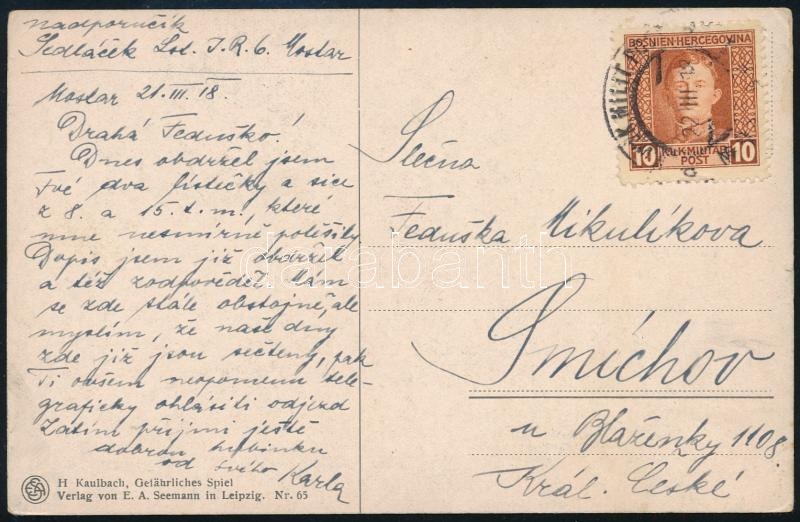 nadporučík
Sedláček Lst. I.R. 6. Mostar
Mostar 21.III.18.
Drahá Feduško!
Dnes obdržel jsem
Tvé dva lístečky a sice
z 8. a 15. t.m., které
mne nesmírně potěšily
Dopis jsem již obdržel
a též zodpověděl. Mám
se zde stále obstojně, ale
myslím, že naše dny
zde již jsou sečteny, pak
Ti ovšem neopomenu tele-
graficky ohlásiti odjezd
Zatím přijmi ještě
dobrou hubinku
od svého Karla
H Kaulbach, Gefährliches Spiel
Verlag von E. A. Seemann in Leipzig. Nr. 65
BOSNIEN-HERCEGOVINA
10 K.u.K. MILITÄR POST 10
22 III 18
Slečna
Feduška Mikulíkova
Smíchov
u Blaženky 1108
Král. České
darabanth